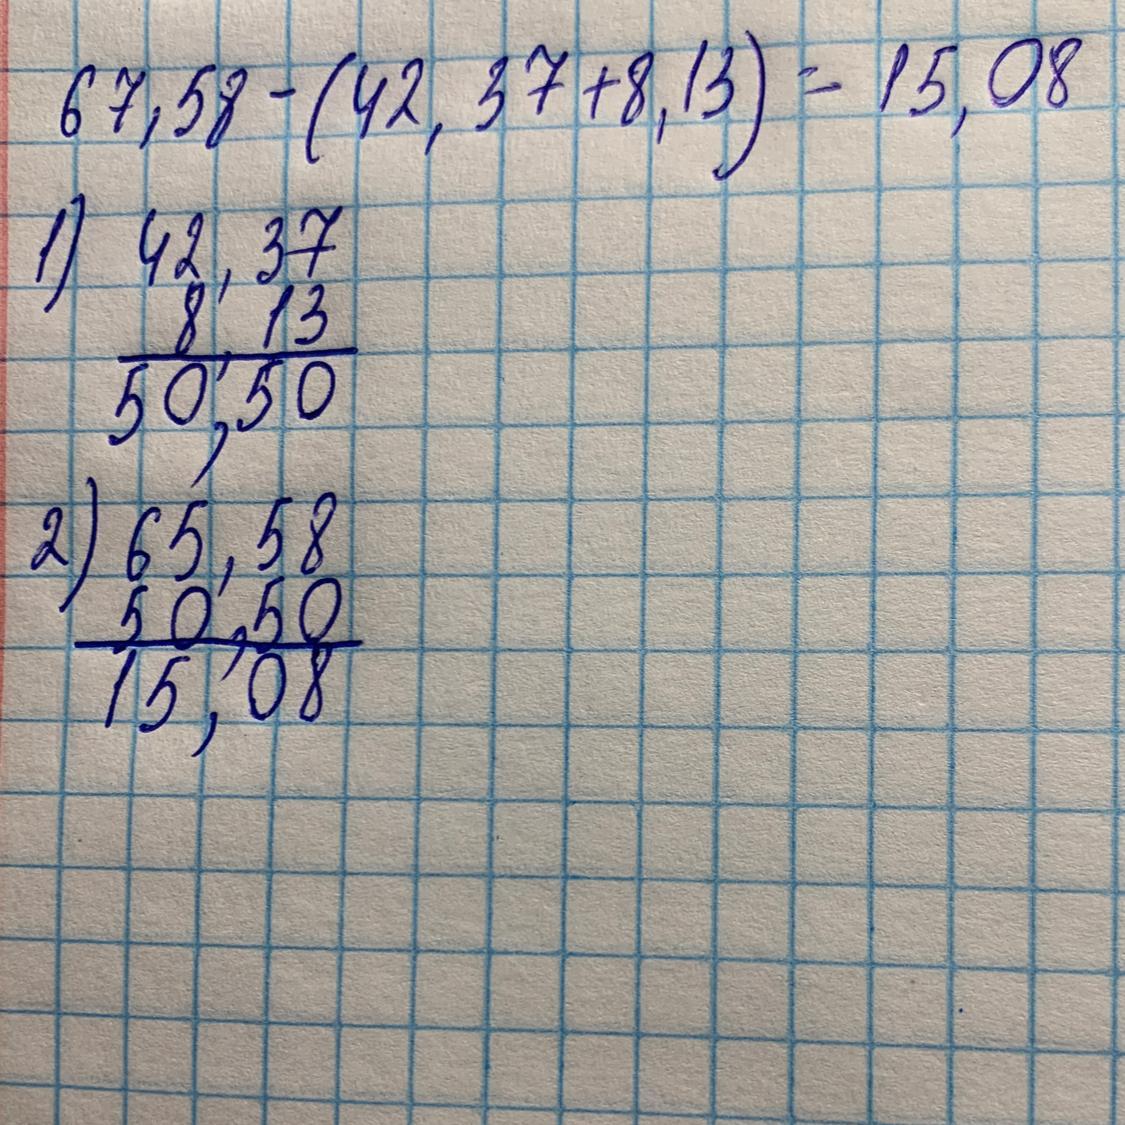 67,58-(42,37+8,13)=15,08
1) 42,37
8,13
50,50
2) 65,58
50,50
15,08